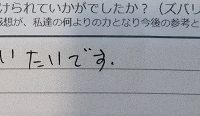 けられていかがでしたか？（ズバリ
感想が、私達の何よりの力となり今後の参考と
いたいです.